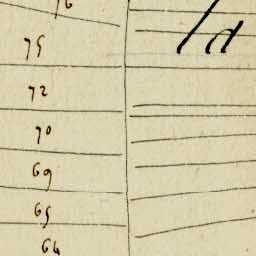 76
75
72
70
69
65
64